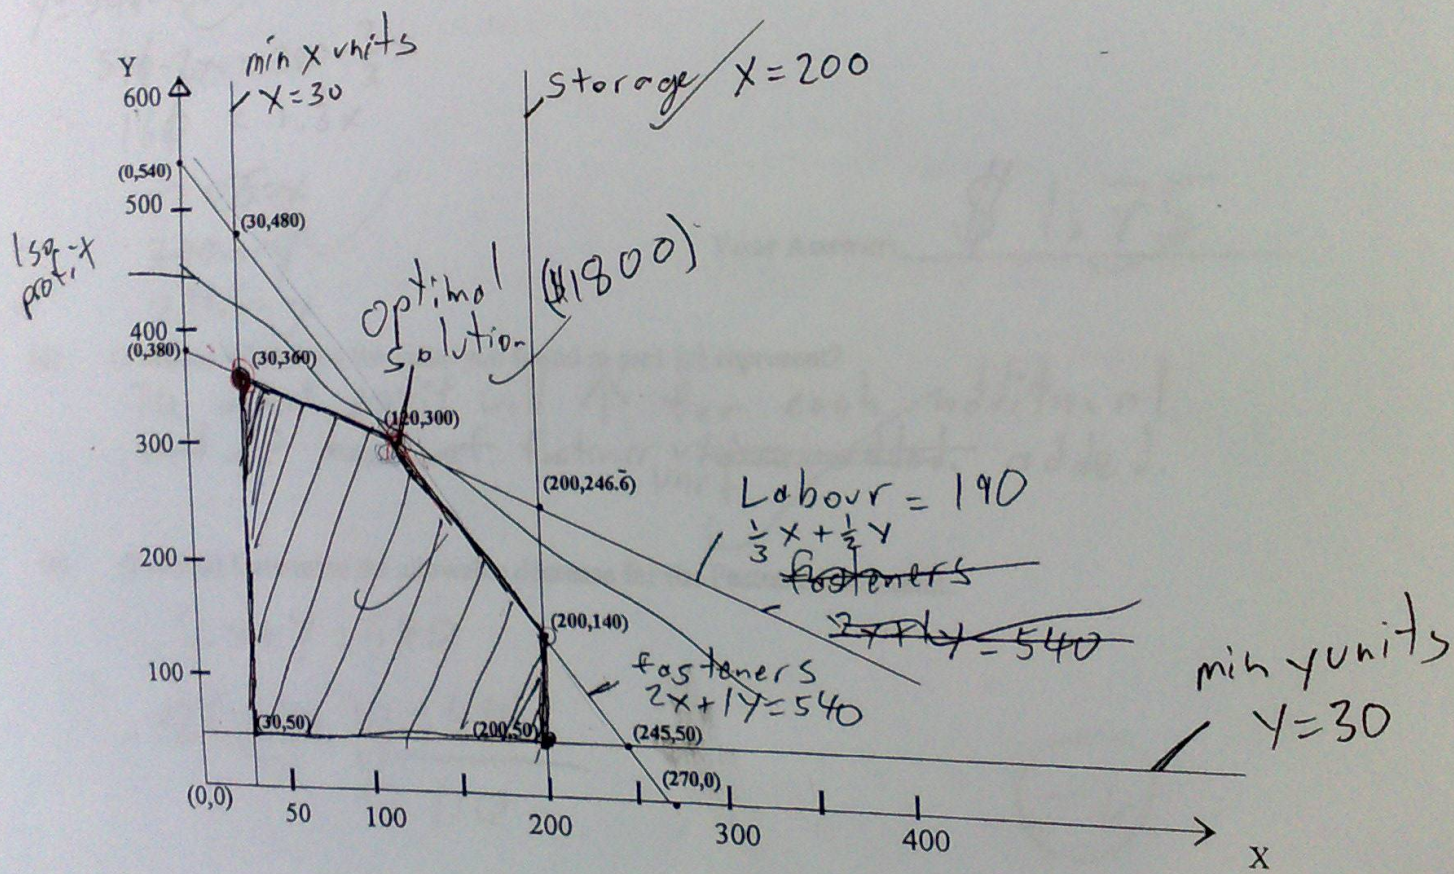 Y
min x units
X=30
Storage
X=200
600
(0,540)
500
(30,480)
Iso-
profit
X
Optimal
solution
($1800)
400
(0,380)
(30,360)
(120,300)
300
(200,246.6̄)
Labour = 190
1/3 X + 1/2 Y
fasteners
2x+1y=540
200
(200,140)
fasteners
2X+1Y=540
min y units
Y=30
100
(30,50)
(200,50)
(245,50)
(270,0)
(0,0)
50
100
200
300
400
X